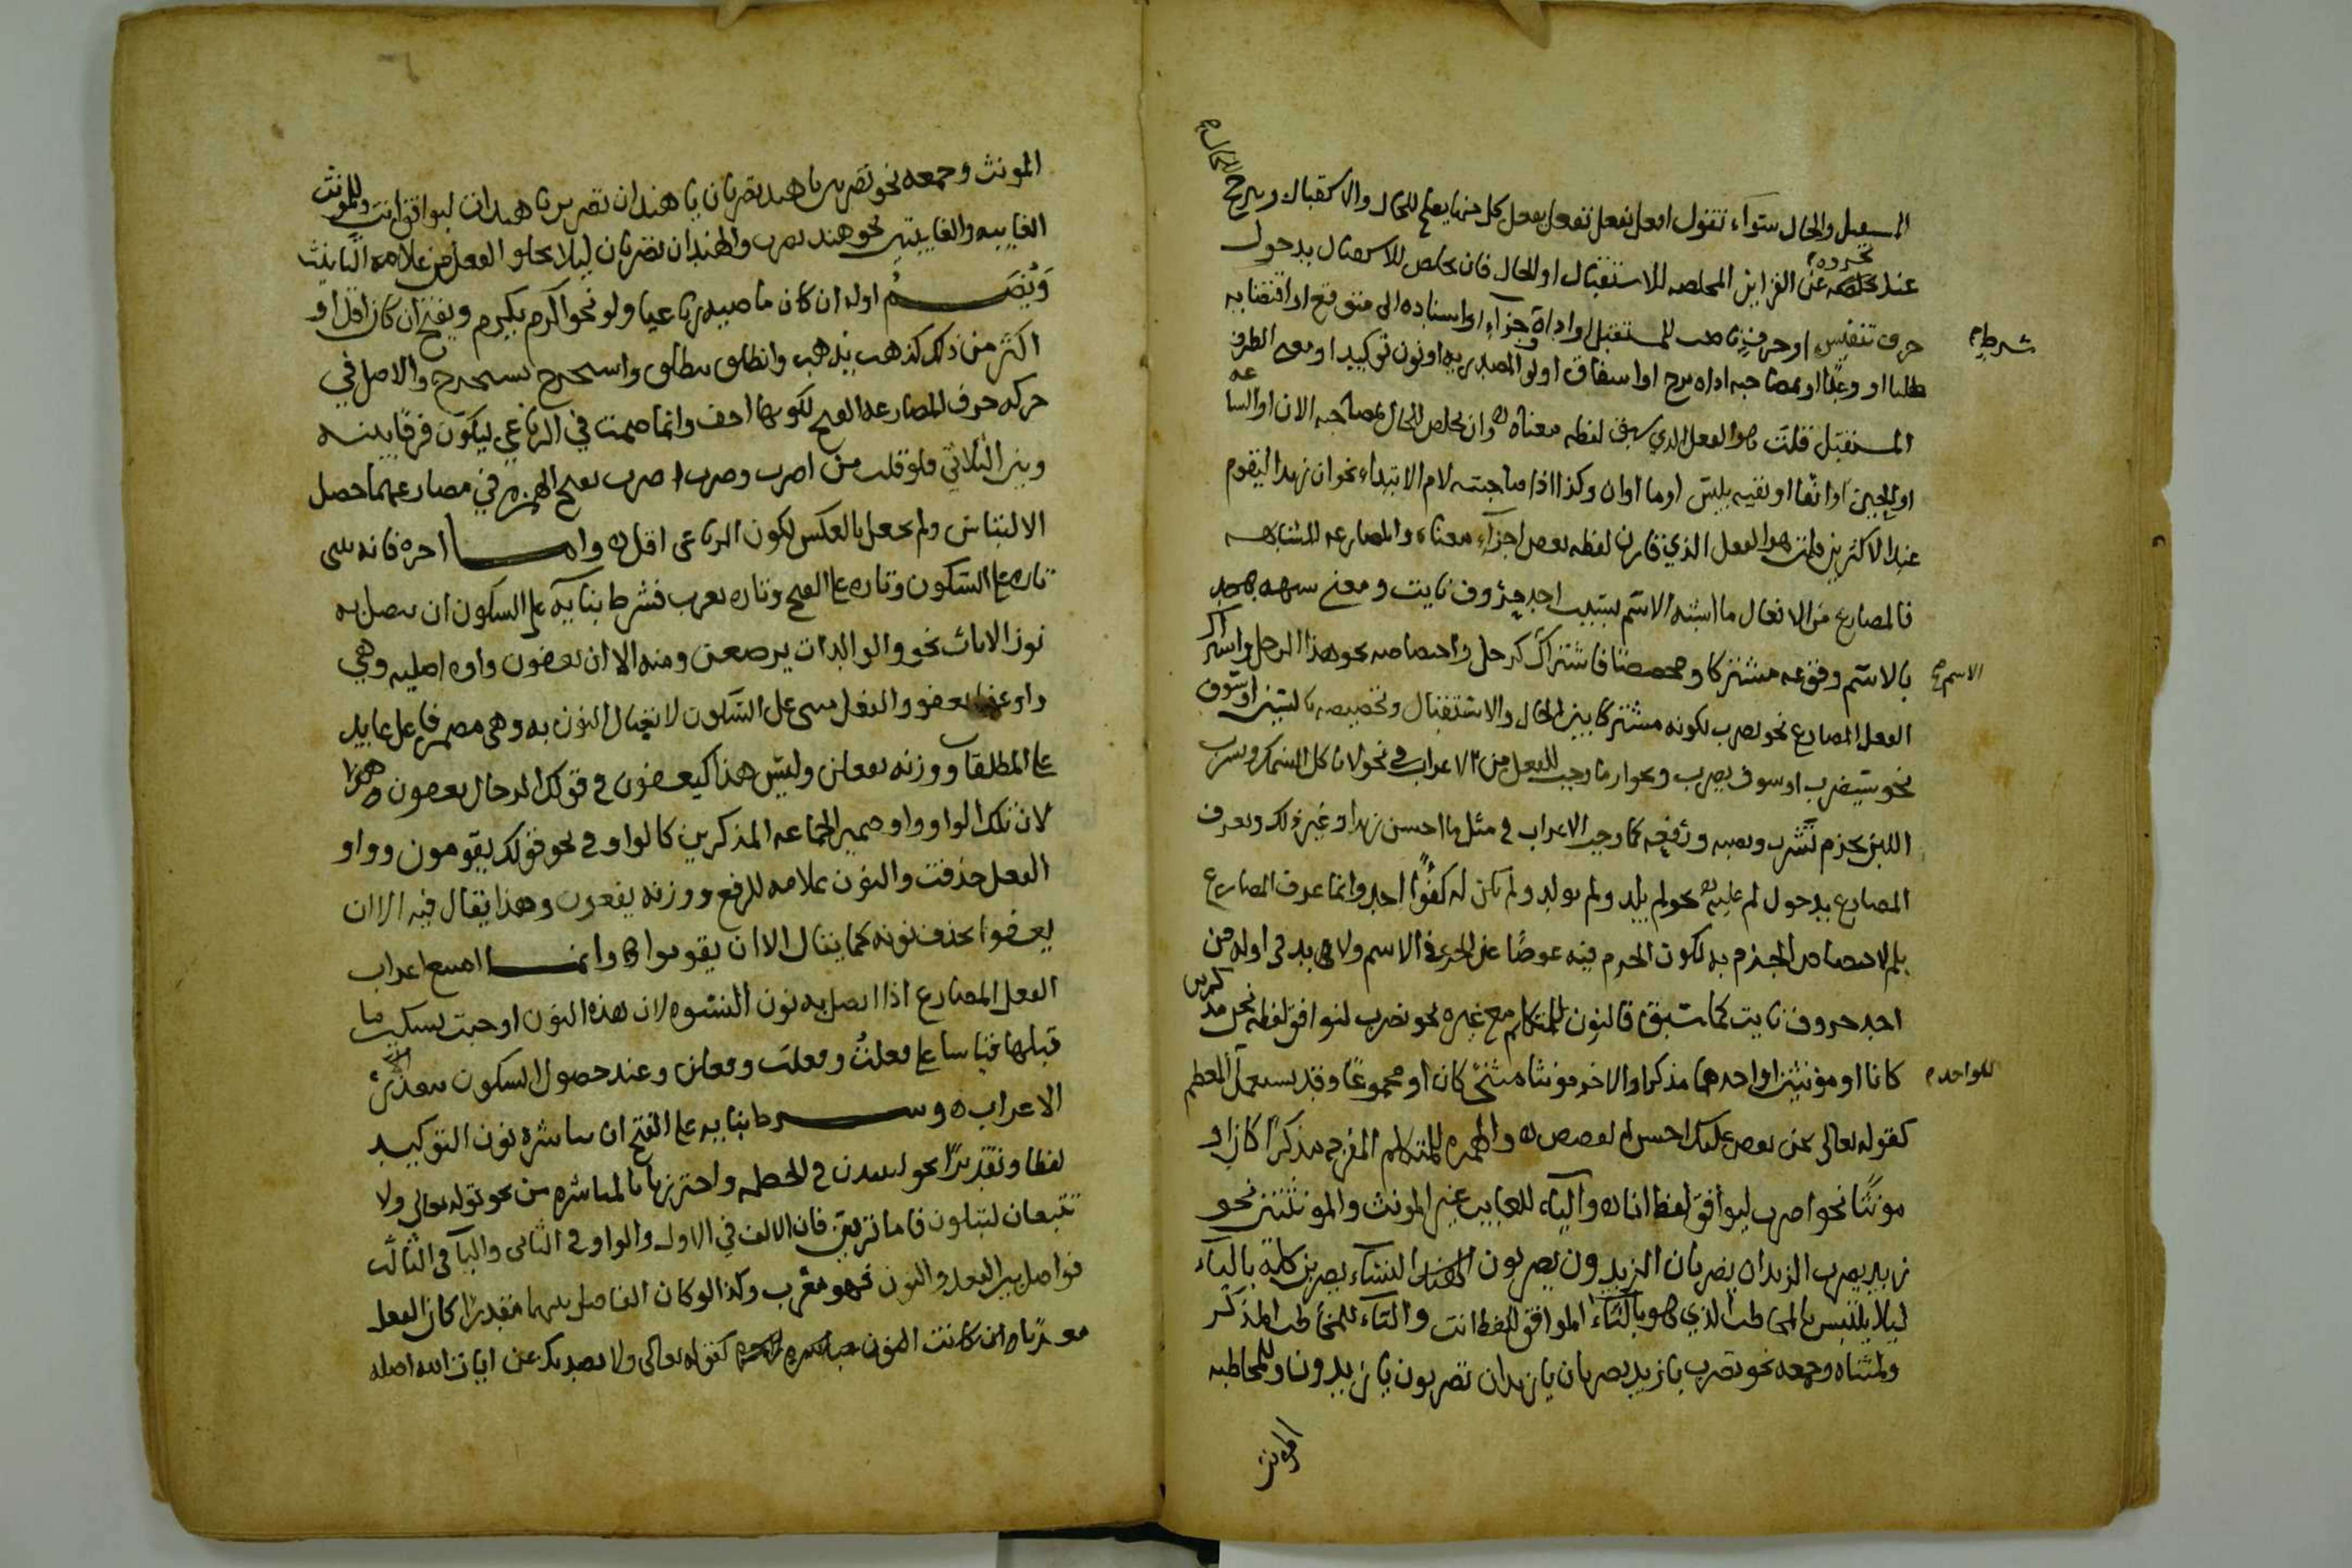 المستقبل والحال سواء تقول افعل نفعل تفعل يفعل كل منها يصلح للحال والاستقبال ويترجح الحال
عند تجرده عن القراين المخلصه للاستقبال او للحال فان تخلص للاستقبال بدخول
حرف تنفيس او حرف ناصب للمستقبل او اداة جزآء او اسناده الى متوقع او اقتضايه
شرطيه
طلبا او وعدًا او بمصاحبه اداه ترج او اشفاق او لو المصدريه او نون توكيد او الظرف
المستقبل قلت هو الفعل الذي سبق لفظه معناه وان تخلص للحال بمصاحبه الان او الساعه
او الحين او آنفا او نفيه بليس او ما او ان وكذا اذا صاحبته لام الابتداء نحو ان زيدا ليقوم
عند الاكثرين قلت هو الفعل الذي قارن لفظه بعض اجزآء معناه والمضارعه المشابهه
فالمضارع من الافعال ما اشبه الاسم بسبب احد حروف نايت ومعنى شبهه
بالاسم وقوعه مشتركا ومخصصا فاشتراك كرجل واختصاصه نحو هذا الرجل واشتراك
الاسم
الفعل المضارع نحو يضرب لكونه مشتركا بين الحال والاستقبال وتخصيصه بالسين او سوف
نحو سيضرب او سوف يضرب ما وجب للفعل من الاعراب في نحو لا تاكل السمك وتشرب
اللبن بجزم تشرب ونصبه ورفعه كما وجب الاعراب في مثل ما احسن زيدا وغير ذلك ويعرف
المضارع بدخول لم عليه نحو لم يلد ولم يولد ولم يكن له كفوًا احد وانما عرف المضارع
بلم لاختصاص الجزم به لكون الجزم فيه عوضًا عن الجر في الاسم ولا بد في اوله من
احد حروف نايت كما سبق فالنون للمتكلم مع غيره نحو نضرب لتوافق لفظ نحن مذكرين
كانا او مؤنثين او احدهما مذكرا والاخر مونثا مثنى كان او مجموعًا وقد يستعمل المعظم
للواحد
كقوله تعالى نحن نقص عليك احسن القصص والهمزه للمتكلم المفرد مذكرًا كان او
مونثًا نحو اضرب ليوافق لفظ انا والياء للغايب غير المونث والمونثتين نحو
زيد يضرب الزيدان يضربان الزيدون يضربون النساء يضربن بالياء
ليلا يلتبس بالمخاطب الذي هو بالتاء الموافق للفظ انت والتاء للمخاطب المذكر
ولمثناه وجمعه نحو تضرب يا زيد تضربان يا زيدان تضربون يا زيدون وللمخاطبه
المونث
المونث وجمعه نحو تضربين يا هند تضربان يا هندان تضربن يا هندات ليوافق انت وللمونث
الغايبه والغايبتين نحو هند تضرب والهندان تضربان ليلا يخلو الفعل من علامه التانيث
وَيُضَمُ اوله ان كان ماضيه رباعيا ولو نحو اكرم يكرم ويفتح ان كان اقل او
اكثر من ذلك كذهب يذهب وانطلق ينطلق واستخرج يستخرج والاصل في
حركه حرف المضارعه الفتح لكونها اخف وانما ضمت في الرباعي ليكون فرقًا بينه
وبين الثلاثي فلو قلت من اضرب وضرب اضرب بفتح الهمزه في مضارعهما حصل
الالتباس ولم يجعل بالعكس لكون الرباعي اقل واما اخره فانه يبنى
تاره على السكون وتاره على الفتح وتاره يعرب فشرط بنايه على السكون ان يتصل به
نون الاناث نحو والوالدات يرضعن ومنه الا ان يعفون واوه اصليه وهي
واو عفا يعفو والفعل مبنى على السكون لاتصال النون به وهي ضمير فاعل عايد
على المطلقات ووزنه يفعلن وليس هذا كيعفون في قولك الرجال يعفون
لان تلك الواو واو ضمير الجماعه المذكرين كالواو في نحو قولك يقومون وواو
الفعل حذفت والنون علامه للرفع ووزنه يفعون وهذا يقال فيه الا ان
يعفوا بحذف نونه كما يقال الا ان يقوموا وانما امتنع اعراب
الفعل المضارع اذا اتصل به نون النسوه لان هذه النون اوجبت تسكين ما
قبلها قياسا على فعلتُ وفعلتَ وفعلن وعند حصول السكون يتعذر
الاعراب وشرط بنايه على الفتح ان تباشره نون التوكيد
لفظا وتقديرًا نحو لينبذن في الحطمه واحترزنا بالمباشره من نحو قوله تعالى ولا
تتبعان لتبلون فاما ترين فان الالف في الاول والواو في الثانى واليآ في الثالث
فواصل بين الفعل والنون فهو معرب وكذا لو كان الفاصل بينهما مقدرًا كان الفعل
معربا وان كانت النون كقوله تعالى ولا يصدنك عن ايات الله اصله